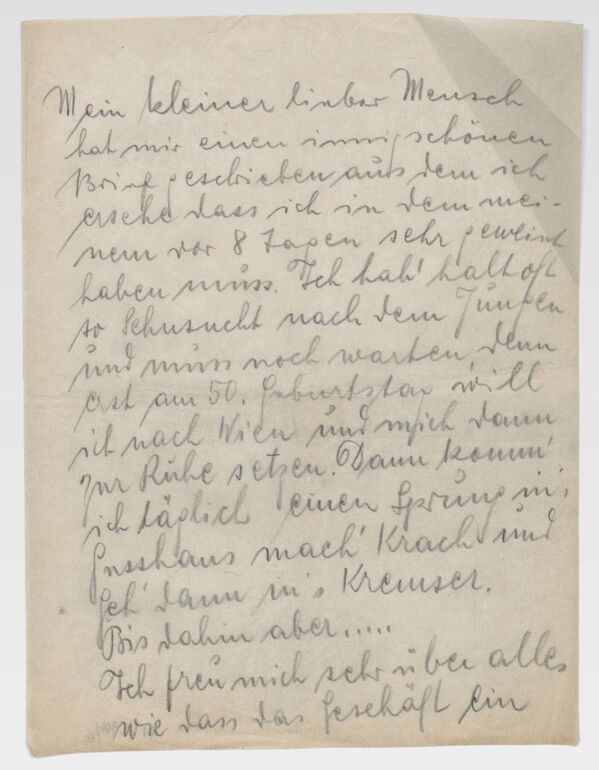 Mein kleiner lieber Mensch
hat mir einen innig schönen
Brief geschrieben aus dem ich
ersehe dass ich in dem mei-
nem vor 8 Tagen sehr geweint
haben muss. Ich hab' halt oft
so Sehnsucht nach dem Jungen
und muss noch warten, denn
erst am 50. Geburtstag will
ich nach Wien und mich dann
zur Ruhe setzen. Dann komm'
ich täglich einen Sprung in's
Gusshaus mach' Krach und
geh' dann in's Kremser.
Bis dahin aber.....
Ich freu mich sehr über alles
wie dass das Geschäft ein